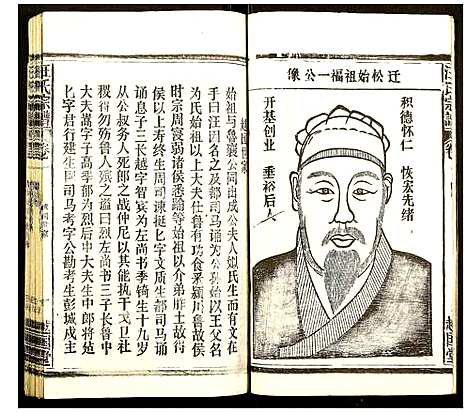 迁松始祖福一公像
积德怀仁 恢宏先绪
开基创业 垂裕后人
始祖与鲁襄公同由成公夫人姒氏生而有文在
手曰汪因名之及都司马诵为公孙始以王父名
为氏始祖以上大夫仕鲁有功食采颍川鲁故侯
时宗周衰弱诸侯悉踰等始祖以介弟腓土故得
侯以上寿终生周司谏挺匕字文质生都司马诵
诵息子三长越字智宾为左尚书季锜生十九岁
从公叔务人死郎之战仲尼以其能执干戈卫社
稷曰勿殇鲁人殡之谥曰烈左尚书三子长鲁中
大夫嵩字子高季都为烈后中大夫生中郎将楚
匕字君行建生司马考字公勘考生彭城戍主